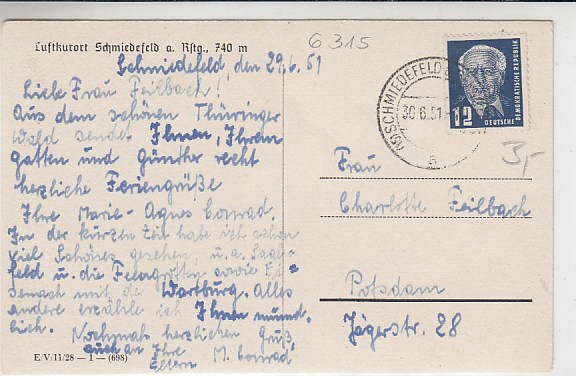 Luftkurort Schmiedefeld a. Rstg., 740 m
6315
Schmiedefeld, den 29.6.51
Liebe Frau Feilbach!
Aus dem schönen Thüringer
Wald sendet Ihnen, Ihrem
Gatten und Günther recht
herzliche Feriengrüße
Ihre Marie-Agnes Conrad.
In der kurzen Zeit habe ich schon
viel Schönes gesehen, u. a. Saal-
feld u. die Feengrotten sowie Ei-
senach mit der Wartburg. Alles
andere erzähle ich Ihnen münd-
lich. Nochmals herzlichen Gruß,
auch an Ihre
Eltern M. Conrad
E/V/11/28 — 1 — (698)
(15) SCHMIEDEFELD
30.6.51
a
12
DEUTSCHE
DEMOKRATISCHE REPUBLIK
3,-
Frau
Charlotte Feilbach
Potsdam
Jägerstr. 28